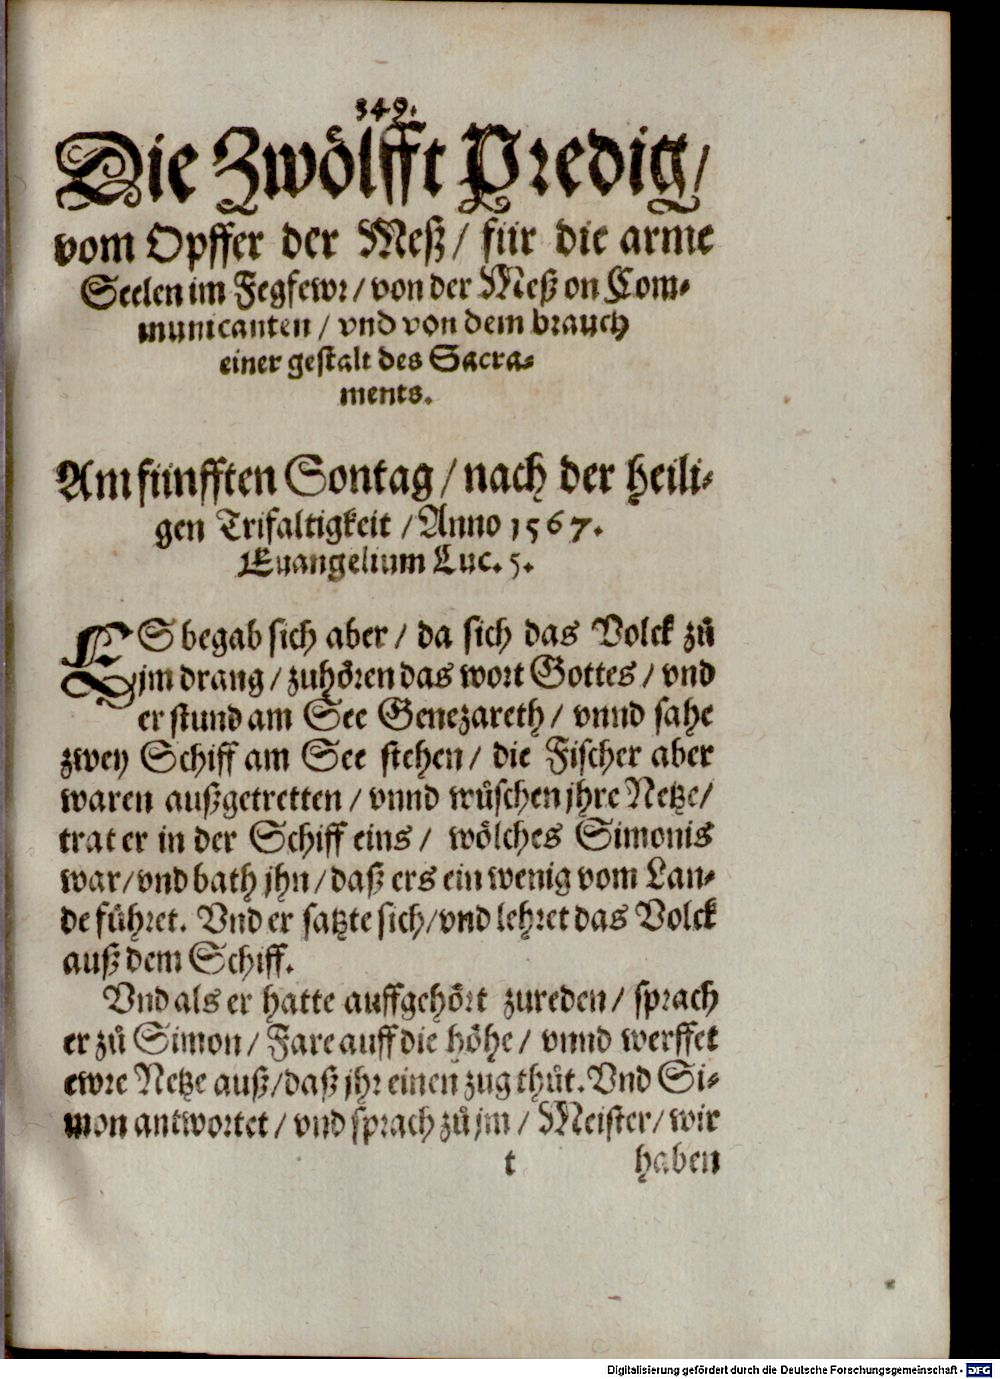 349.
Die Zwölfft Predig/
vom Opffer der Meß/ für die arme
Seelen im Fegfewr/ von der Meß on Com-
municanten/ vnd von dem brauch
einer gestalt des Sacra-
ments.
Am fünfften Sontag/ nach der heili-
gen Trifaltigkeit/ Anno 1567.
Euangelium Luc. 5.
ES begab sich aber/ da sich das Volck zů
jm drang/ zuhören das wort Gottes/ vnd
er stund am See Genezareth/ vnnd sahe
zwey Schiff am See stehen/ die Fischer aber
waren außgetretten/ vnnd wůschen jhre Netze/
trat er in der Schiff eins/ wölches Simonis
war/ vnd bath jhn/ daß ers ein wenig vom Lan-
de führet. Vnd er satzte sich/ vnd lehret das Volck
auß dem Schiff.
Vnd als er hatte auffgehört zureden/ sprach
er zů Simon/ Fare auff die höhe/ vnnd werffet
ewre Netze auß/ daß jhr einen zug thůt. Vnd Si-
mon antwortet/ vnd sprach zů jm/ Meister/ wir
t haben
Digitalisierung gefördert durch die Deutsche Forschungsgemeinschaft - DFG